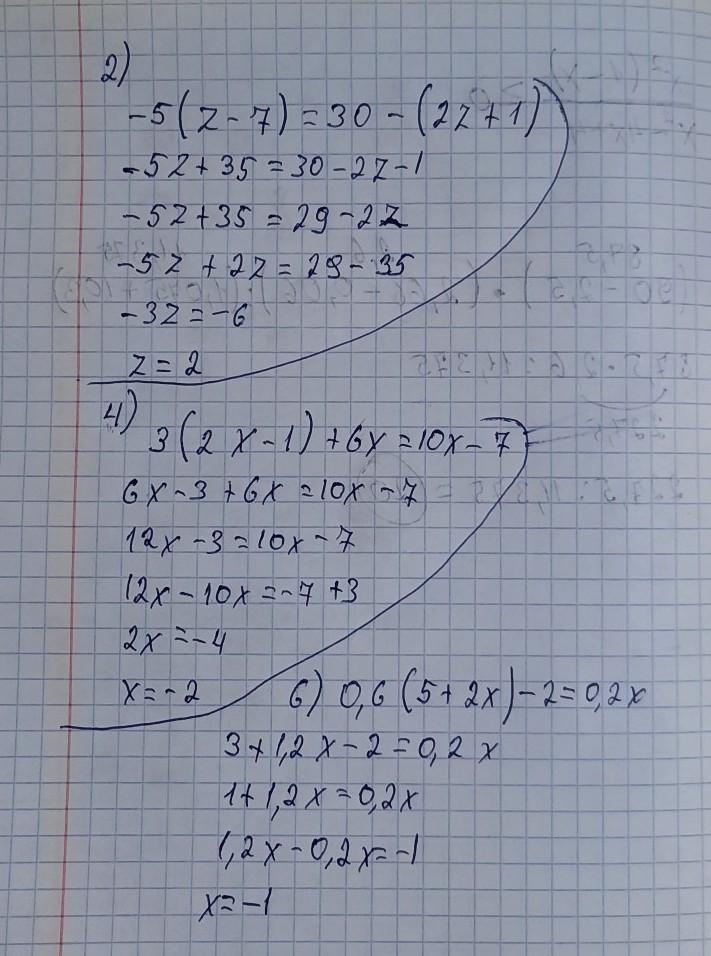 2)
-5(z-7)=30-(2z+1)
-5z+35=30-2z-1
-5z+35=29-2z
-5z+2z=29-35
-3z=-6
z=2
4)
3(2x-1)+6x=10x-7
6x-3+6x=10x-7
12x-3=10x-7
12x-10x=-7+3
2x=-4
x=-2
6) 0,6(5+2x)-2=0,2x
3+1,2x-2=0,2x
1+1,2x=0,2x
1,2x-0,2x=-1
x=-1